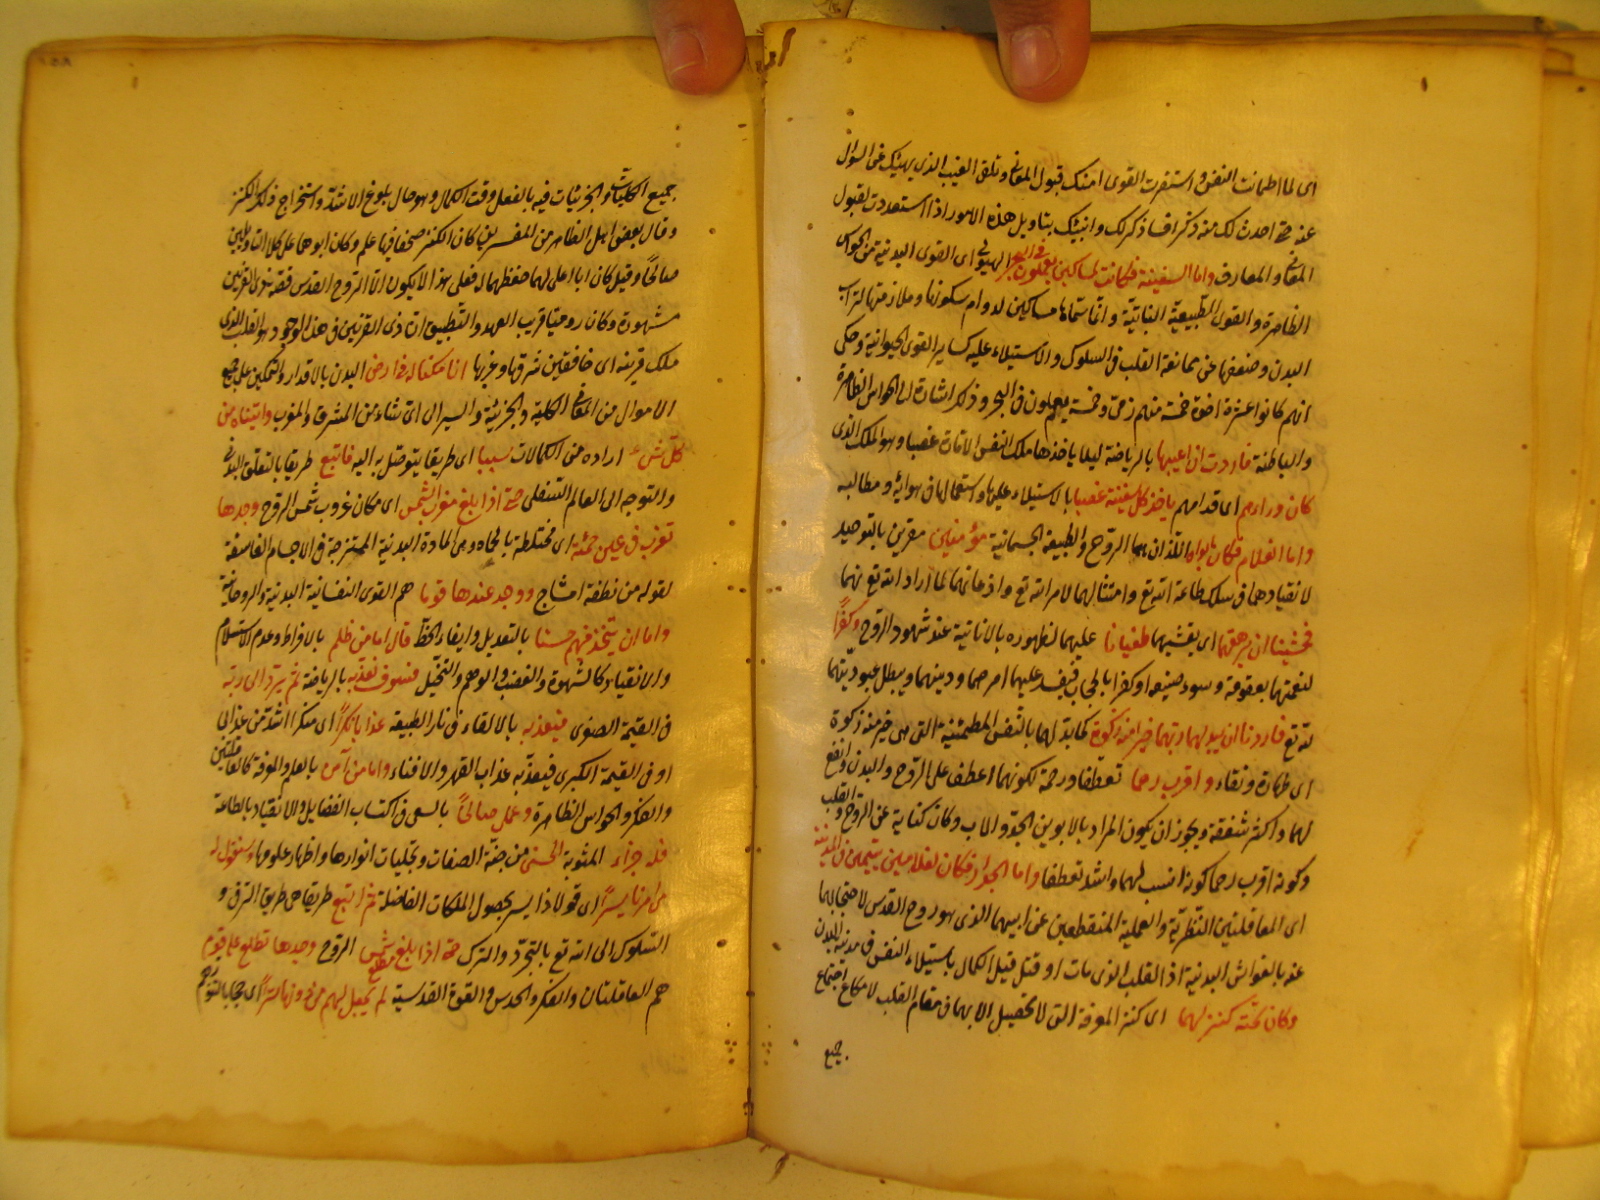 اى لما اطمانت النفس واستقرت القوى امنك قبول المعانى وتلقى الغيب الذى نهيتك عن السؤال
عنه حتى احدث لك منه ذكرا فساذكر لك وانبئك بتاويل هذه الامور اذا استعددت لقبول
المعانى والمعارف واما السفينة فكانت لمساكين يعملون فى البحر الهيولى اى القوى البدنية من الحواس
الظاهرة والقوى الطبيعية النباتية وانما سماها مساكين لدوام سكونها وملازمتها لتراب
البدن وضعفها عن ممانعة القلب فى السلوك والاستيلاء عليه كساير القوى الحيوانية وحكى
انهم كانوا عشرة اخوة خمسة منهم زمنى وخمسة يعملون فى البحر وذلك اشارة الى الحواس الظاهرة
والباطنة فاردت ان اعيبها بالرياضة ليلا ياخذها ملك النفس الامارة غصبا وهو الملك الذى
كان وراءهم اى قدامهم ياخذ كل سفينة غصبا بالاستيلاء عليها واستعمالها فى هوايه ومطالبه
واما الغلام فكان ابواه اللذان هما الروح والطبيعة الجسمانية مؤمنين مقرين بالتوحيد
لانقيادهما فى سلك طاعة الله تع وامتثالهما لامر الله تع واذعانهما لما اراد الله تع منهما
فخشينا ان يرهقهما اى يغشيهما طغيانا عليهما لظهوره بالانانية عند شهود الروح وكفرا
لنعمتهما بعقوقه وسوء صنيعه او كفرا بالحجاب فيفسد عليهما امرهما ودينهما ويبطل عبوديتهما
لله تع فاردنا ان يبدلهما ربهما خيرا منه زكوة كما بدل لهما بالنفس المطمئنة التى هى خير منه زكوة
اى طهارة ونقاء واقرب رحما تعطفا ورحمة لكونها اعطف على الروح والبدن وانفع
لهما واكثر شفقة ويجوز ان يكون المراد بالابوين الجد والاب وكان كناية عن الروح والقلب
وكونه اقرب رحما كونه انسب لهما واشد تعطفا واما الجدار فكان لغلامين يتيمين فى المدينة
اى العاقلتين النظرية والعملية المنقطعين عن ابيهما الذى هو روح القدس لاحتجابهما
عنه بالغواشى البدنية اذ القلب الذى مات او قتل قبل الكمال باستيلاء النفس فى مدينة البدن
وكان تحته كنز لهما اى كنز المعرفة التى لا تحصل الا بهما فى مقام القلب لامكان اجتماع
جميع
جميع الكليات والجزئيات فيه بالفعل وقت الكمال وهو حال بلوغ الاشد واستخراج ذلك الكنز
وقال بعض اهل الظاهر من المفسرين كان الكنز صحفا فيها علم وكان ابوهما على كلا التاويلين
صالحا وقيل كان ابا اعلى لهما حفظهما له فعلى هذا لا يكون الا الروح القدس قصة ذى القرنين
مشهورة وكان روميا قريب العهد والتطبيق ان ذى القرنين فى هذا الوجود هو القلب الذى
ملك قرنيه اى خافقين شرقها وغربها انا مكنا له فى ارض البدن بالاقدار والتمكين على جمع
الاموال من المعانى الكلية والجزئية والسير الى اى شاء من المشرق والمغرب واتيناه من
كل شىء اراده من الكمالات سببا اى طريقا يتوصل به اليه فاتبع طريقا بالتعلق البدنى
والتوجه الى العالم السفلى حتى اذا بلغ مغرب الشمس اى مكان غروب شمس الروح وجدها
تغرب فى عين حمئة اى مختلطة بالحماة وهى المادة البدنية الممتزجة فى الاجسام الغاسقة
لقوله من نطفة امشاج ووجد عندها قوما هم القوى النفسانية البدنية والروحانية
واما ان يتخذ فيهم حسنا بالتعديل وايفاء الحظ قال اما من ظلم بالافراط وعدم الاستسلام
والانقياد كالشهوة والغضب والوهم والتخيل فسوف نعذبه بالرياضة ثم يرد الى ربه
فى القيمة الصغرى فيعذبه بالالقاء فى نار الطبيعة عذابا نكرا اى منكرا اشد من عذابى
او فى القيمة الكبرى فيعذبه عذاب القهر والافناء واما من آمن بالعلم والمعرفة كالعاقلتين
والفكر والحواس الظاهرة وعمل صالحا بالسعى فى اكتساب الفضايل والانقياد بالطاعة
فله جزاء المثوبة الحسنى من جنة الصفات وتجليات انوارها وانهار علومها وسنقول له
من امرنا يسرا اى قولا ذا يسر بحصول الملكات الفاضلة ثم اتبع طريقا هى طريق الترقى و
السلوك الى الله تع بالتجرد والترك حتى اذا بلغ مطلع شمس الروح وجدها تطلع على قوم
هم العاقلتان والفكر والحدس والقوة القدسية لم نجعل لهم من دونها سترا اى حجابا